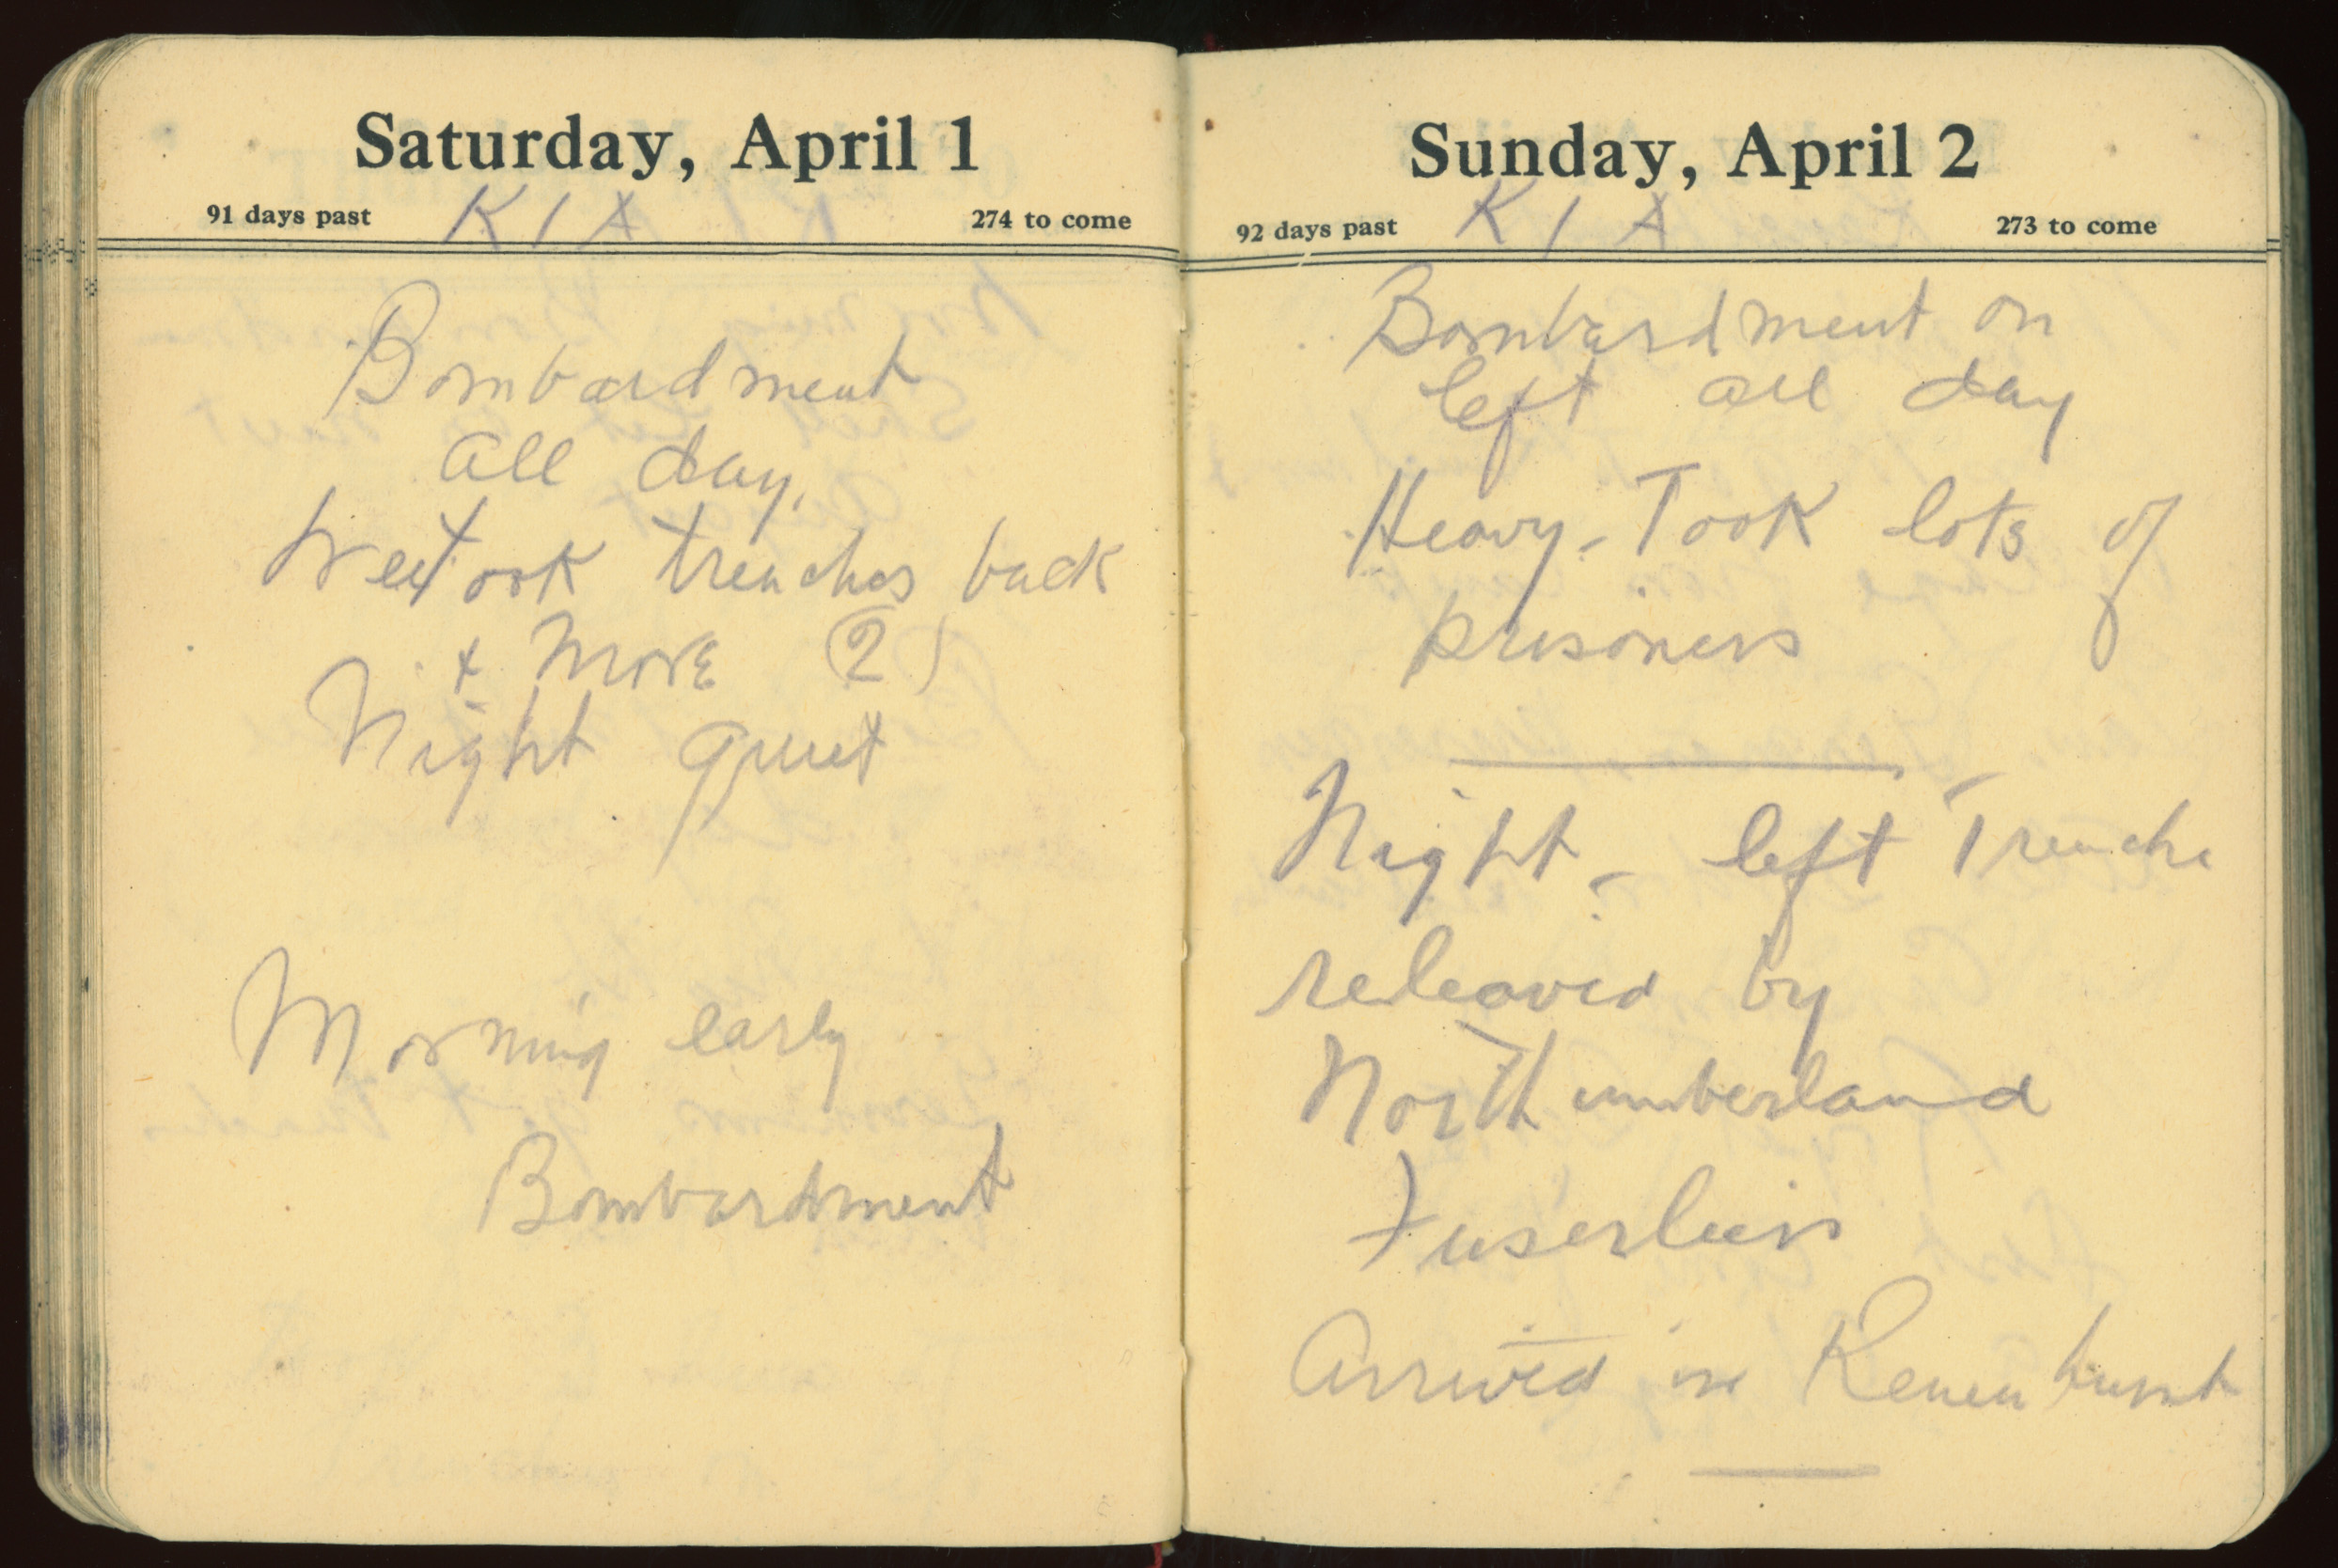 Saturday, April 1
91 days past K I A 274 to come
Bombardment
all day,
We took trenches back
+ more (2)
Night quiet
Morning early
Bombardment
Sunday, April 2
92 days past K I A 273 to come
Bombardment on
left all day
Heavy - Took lots of
prisoners
Night - left Trenche
releaved by
Northumberland
Fuserleirs
Arrived in